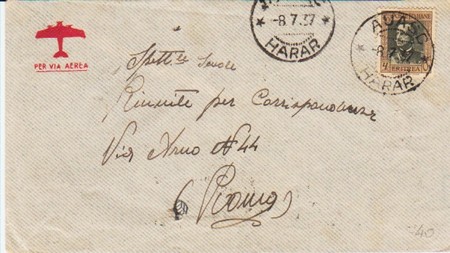 PER VIA AEREA
-8.7.37
HARAR
AUASC
-8.7.37
HARAR
ERITREA
Spett.le Scuole
Riunite per Corrispondenza
Via Arno N 44
(Roma)
40